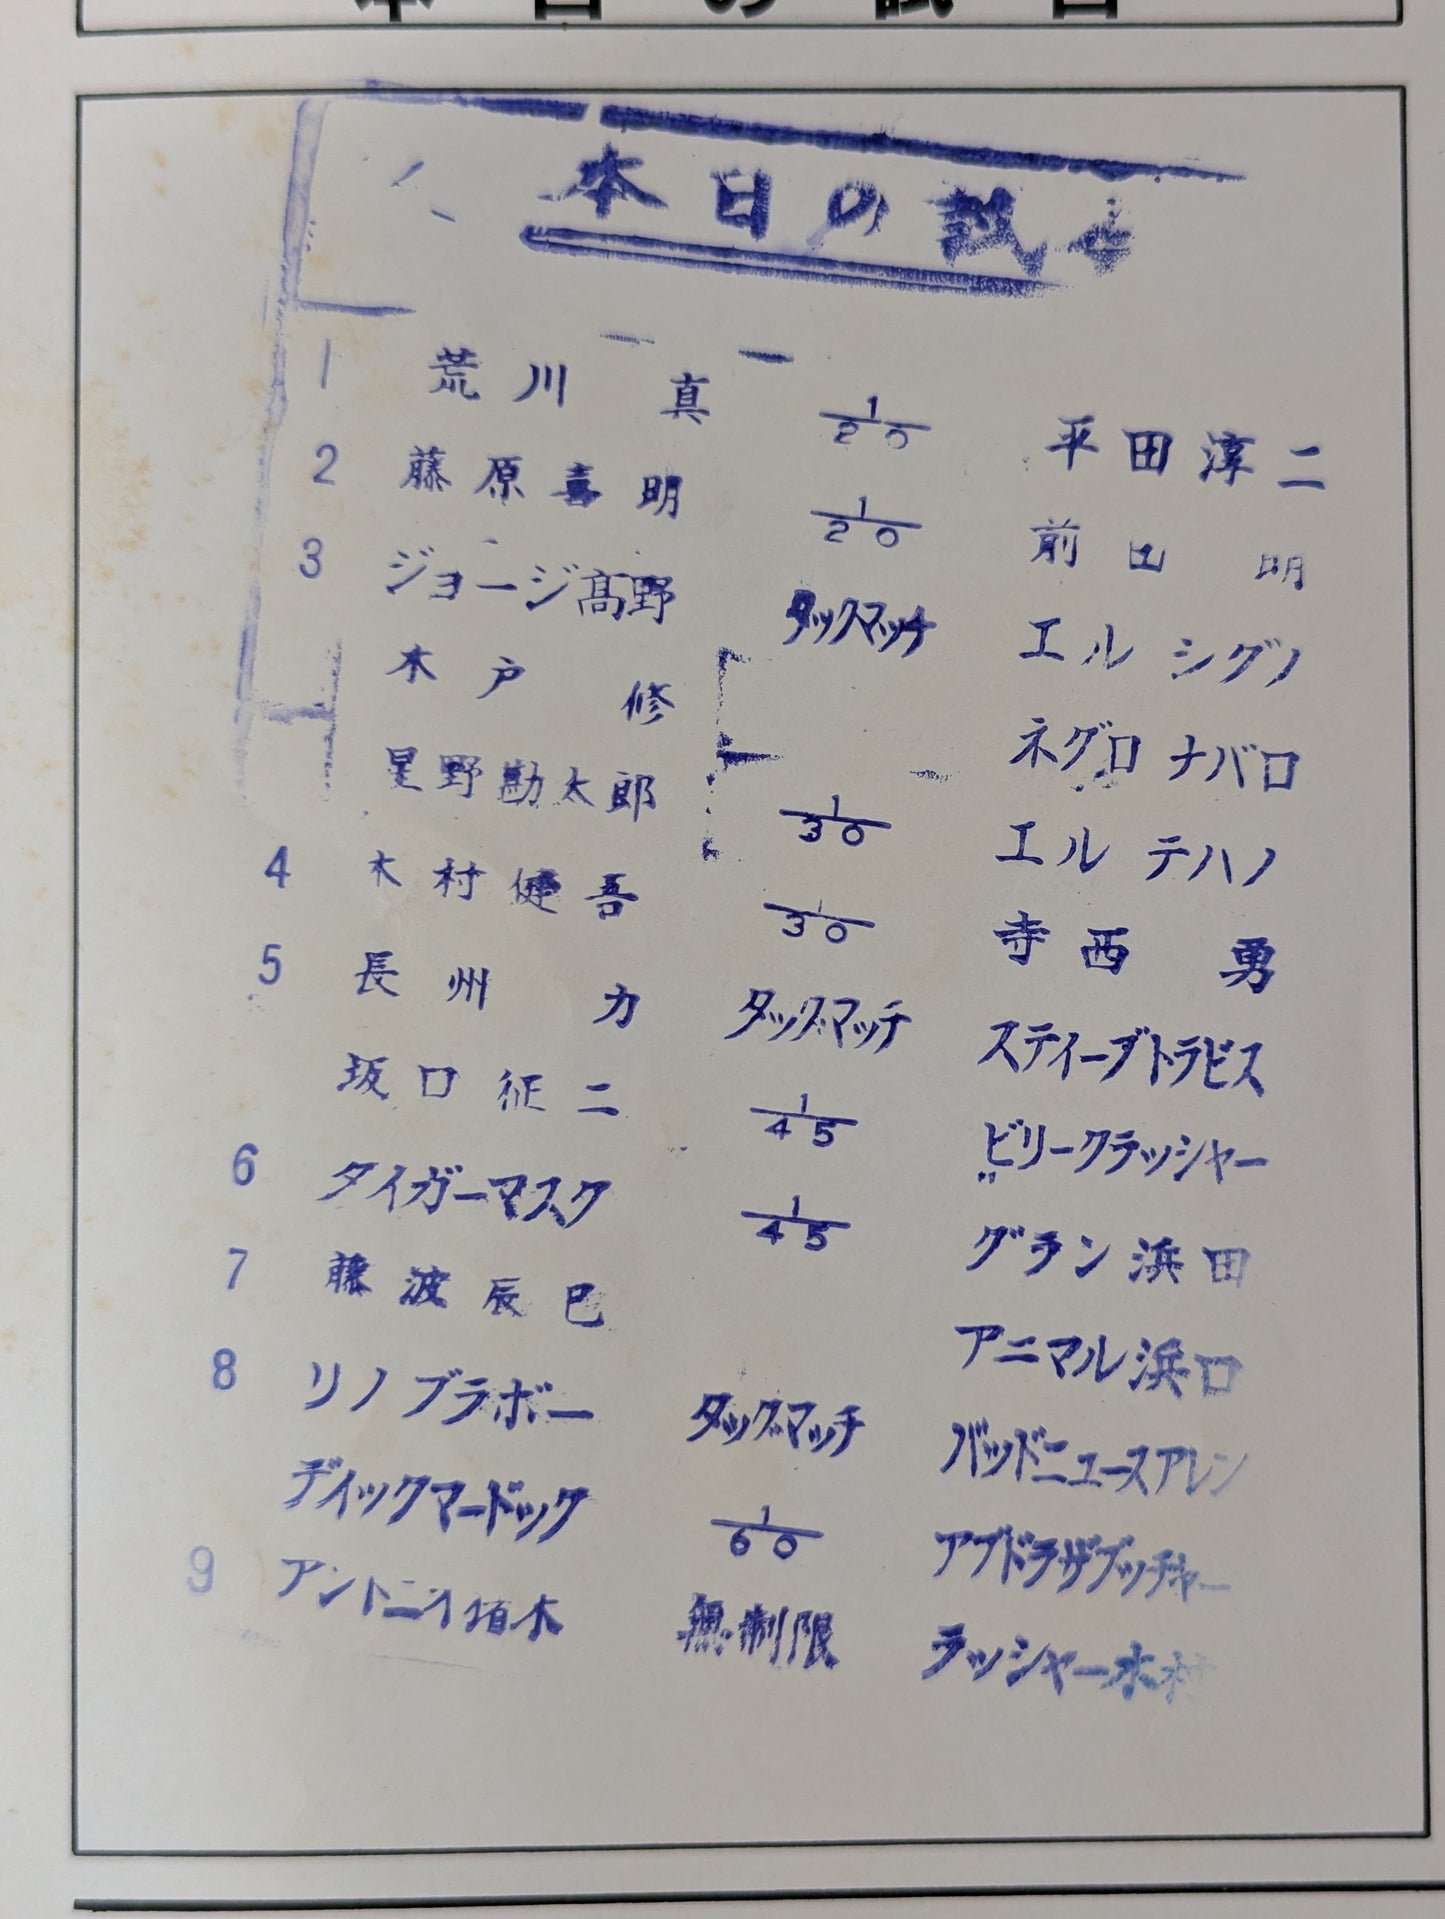 本日の試合
本日の試合
1 荒川 真 1/20 平田淳二
2 藤原喜明 1/20 前田 明
3 ジョージ高野 タッグマッチ エル シグノ
木戸 修 ネグロ ナバロ
星野勘太郎 1/30 エル テハノ
4 木村健吾 1/30 寺西 勇
5 長州 力 タッグマッチ スティーブトラビス
坂口征二 1/45 ビリークラッシャー
6 タイガーマスク 1/45 グラン浜田
7 藤波辰巳 アニマル浜口
8 リノ ブラボー タッグマッチ バッドニュースアレン
ディックマードック 1/60 アブドラザブッチャー
9 アントニオ猪木 無制限 ラッシャー木村